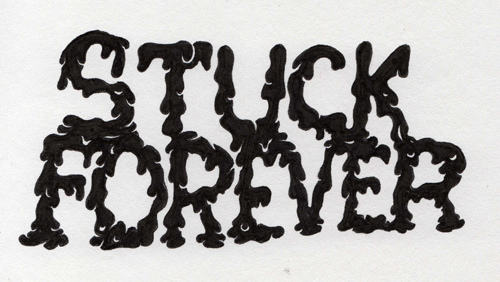 STUCK
FOREVER